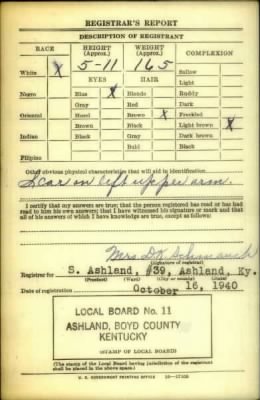 REGISTRAR'S REPORT
DESCRIPTION OF REGISTRANT
RACE HEIGHT (Approx.) WEIGHT (Approx.) COMPLEXION
White X 5-11 165 Sallow
Light
EYES HAIR
Negro Blue X Blonde Ruddy
Gray Red Dark
Oriental Hazel Brown X Freckled
Brown Black Light brown X
Indian Black Gray Dark brown
Bald Black
Filipino
Other obvious physical characteristics that will aid in identification
Scar on left upper arm.
I certify that my answers are true; that the person registered has read or has
had read to him his own answers; that I have witnessed his signature or mark and that
all of his answers of which I have knowledge are true, except as follows:
Mrs D.K.
(Signature of registrar)
Registrar for S. Ashland, #39, Ashland, Ky.
(Precinct) (Ward) (City or county) (State)
Date of registration October 16, 1940
LOCAL BOARD No. 11
ASHLAND, BOYD COUNTY
KENTUCKY
(STAMP OF LOCAL BOARD)
(The stamp of the Local Board having jurisdiction of the registrant
shall be placed in the above space.)
U. S. GOVERNMENT PRINTING OFFICE